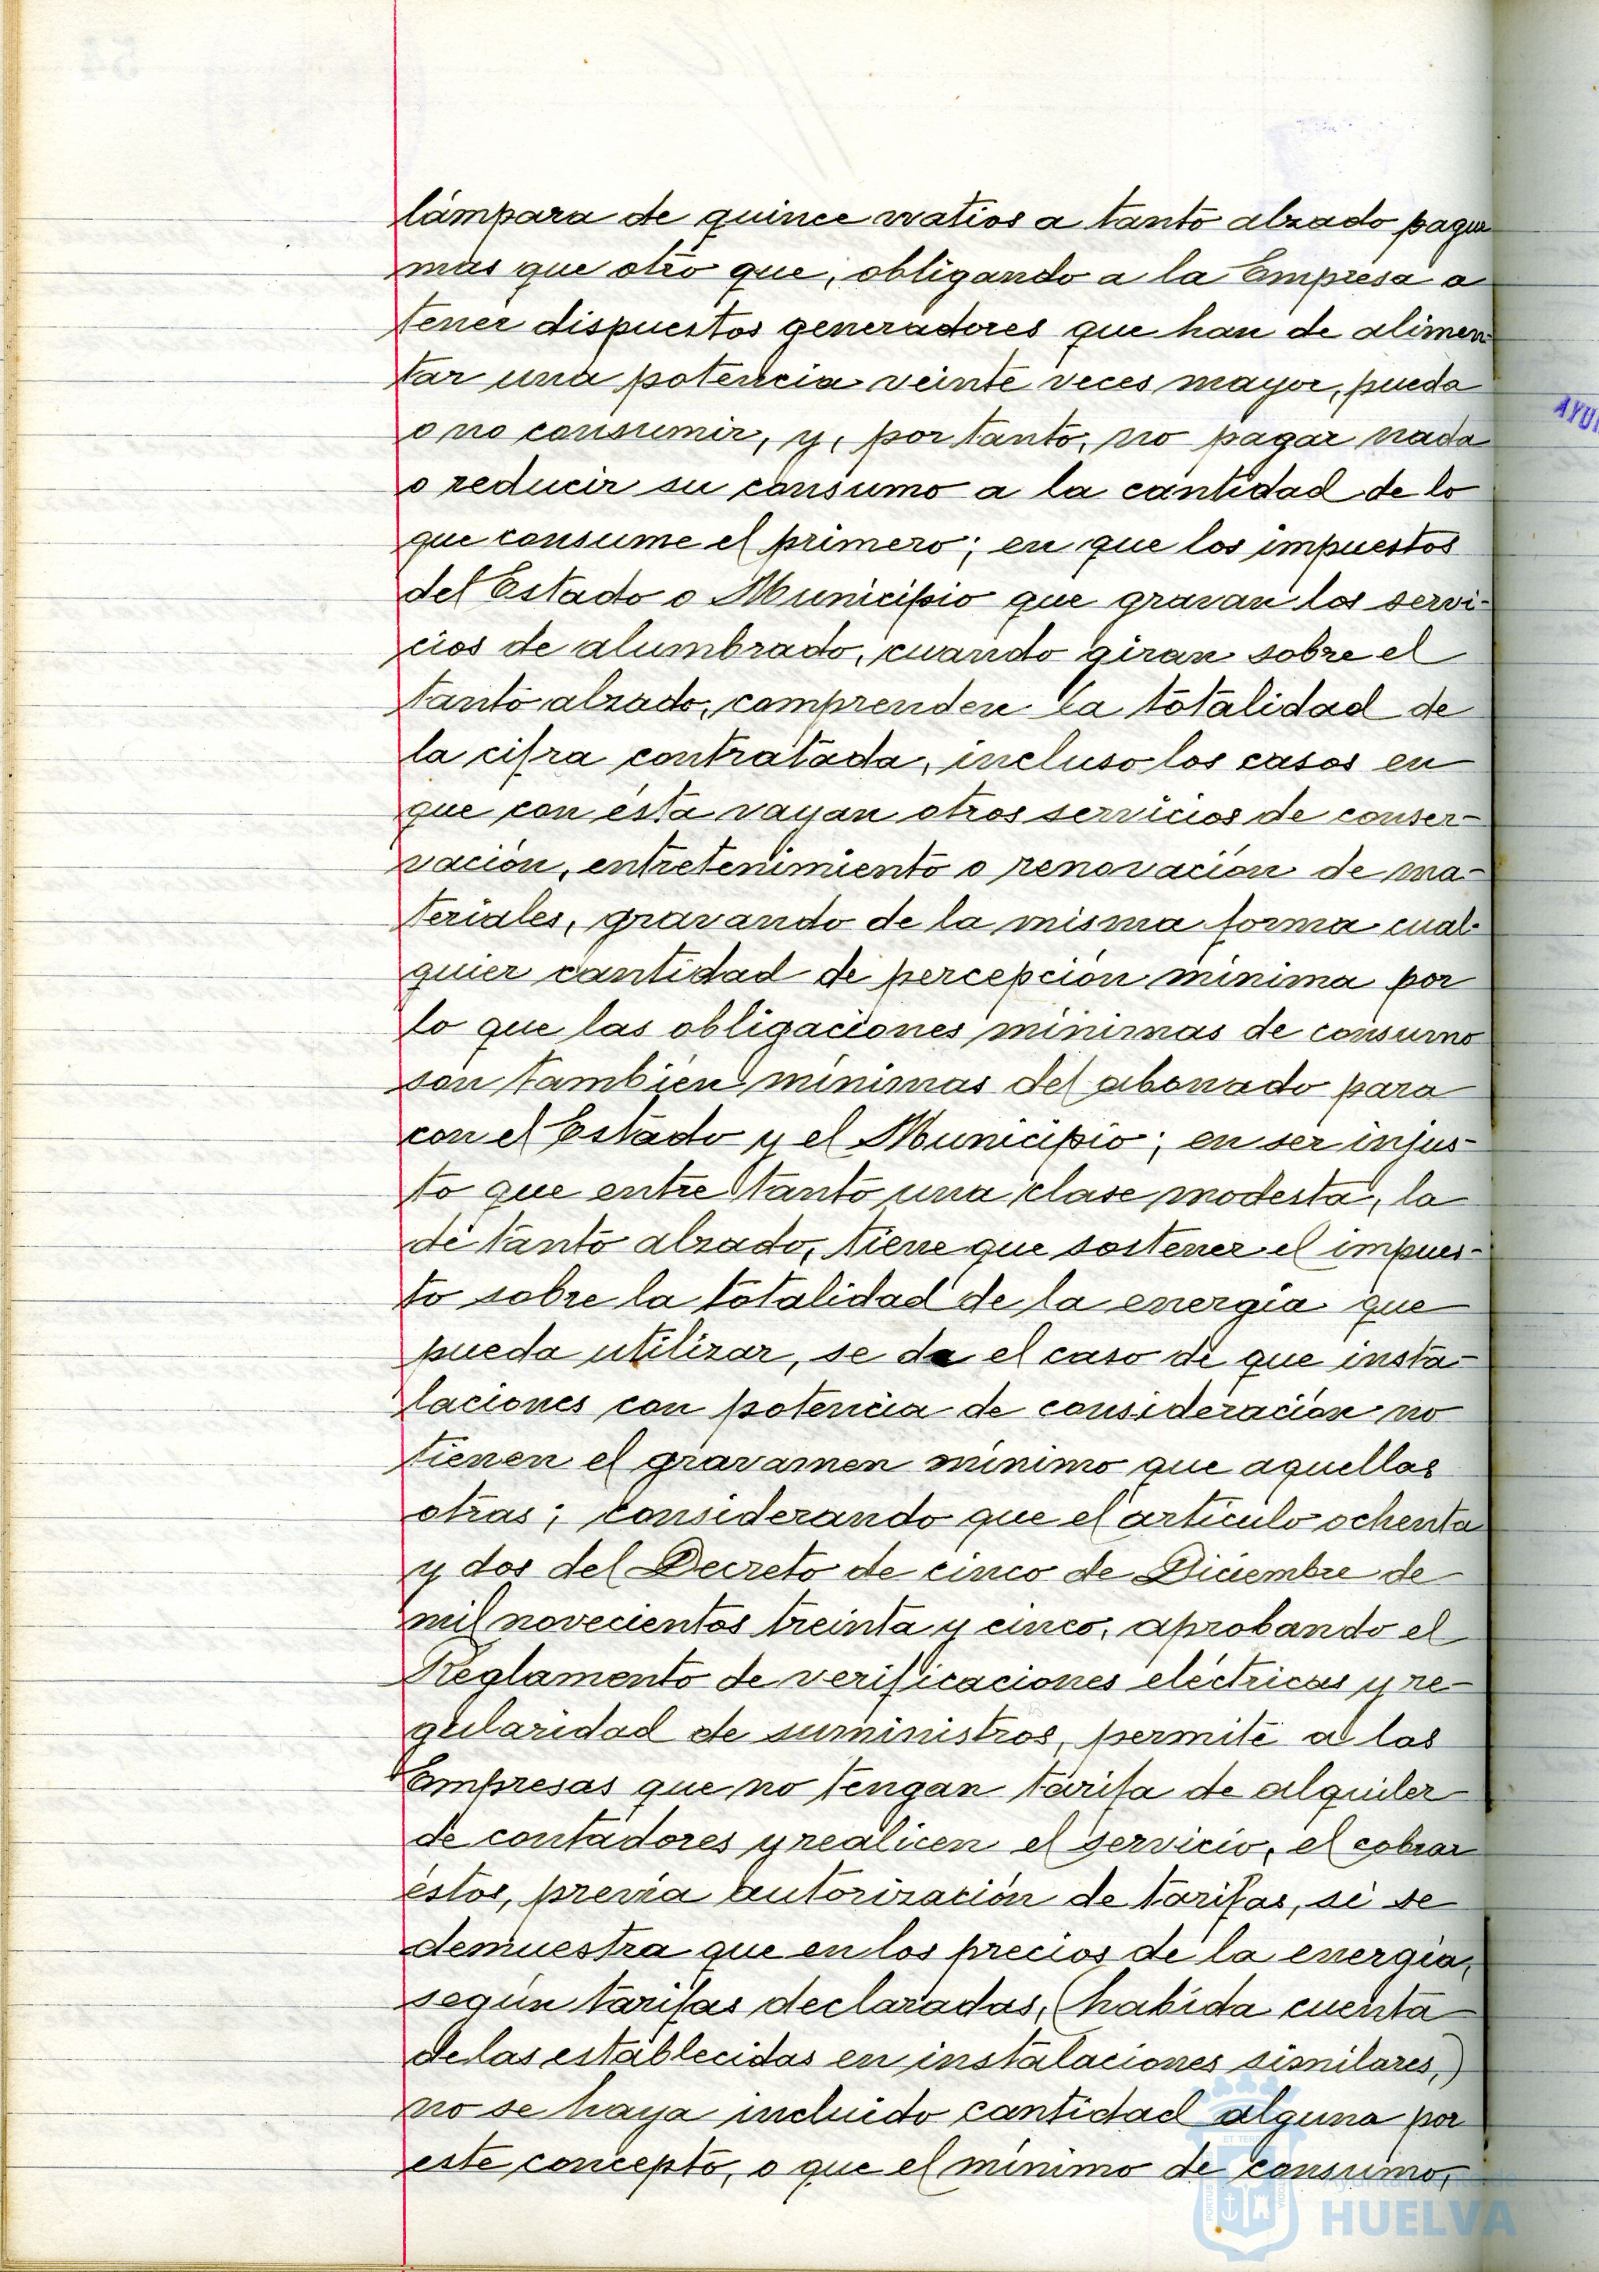 lámpara de quince watios a tanto alzado pague
mas que otro que, obligando a la Empresa a
tener dispuestos generadores que han de alimen-
tar una potencia veinte veces mayor, pueda
o no consumir, y, por tanto, no pagar nada
o reducir su consumo a la cantidad de lo
que consume el primero; en que los impuestos
del Estado o Municipio que gravan los servi-
cios de alumbrado, cuando giran sobre el
tanto alzado, comprenden la totalidad de
la cifra contratada, incluso los casos en
que con ésta vayan otros servicios de conser-
vación, entretenimiento o renovación de ma-
teriales, gravando de la misma forma cual-
quier cantidad de percepción mínima por
lo que las obligaciones mínimas de consumo
son también mínimas del abonado para
con el Estado y el Municipio; en ser injus-
to que entre tanto una clase modesta, la
de tanto alzado, tiene que sostener el impues-
to sobre la totalidad de la energía que
pueda utilizar, se da el caso de que insta-
laciones con potencia de consideración no
tienen el gravamen mínimo que aquellas
otras; considerando que el artículo ochenta
y dos del Decreto de cinco de Diciembre de
mil novecientos treinta y cinco, aprobando el
Reglamento de verificaciones eléctricas y re-
gularidad de suministros, permite a las
Empresas que no tengan tarifa de alquiler
de contadores y realicen el servicio, el cobrar
éstos, previa autorización de tarifas, si se
demuestra que en los precios de la energía,
según tarifas declaradas, (habida cuenta
de las establecidas en instalaciones similares,)
no se haya incluido cantidad alguna por
este concepto, o que el mínimo de consumo,
Ayuntamiento de
HUELVA